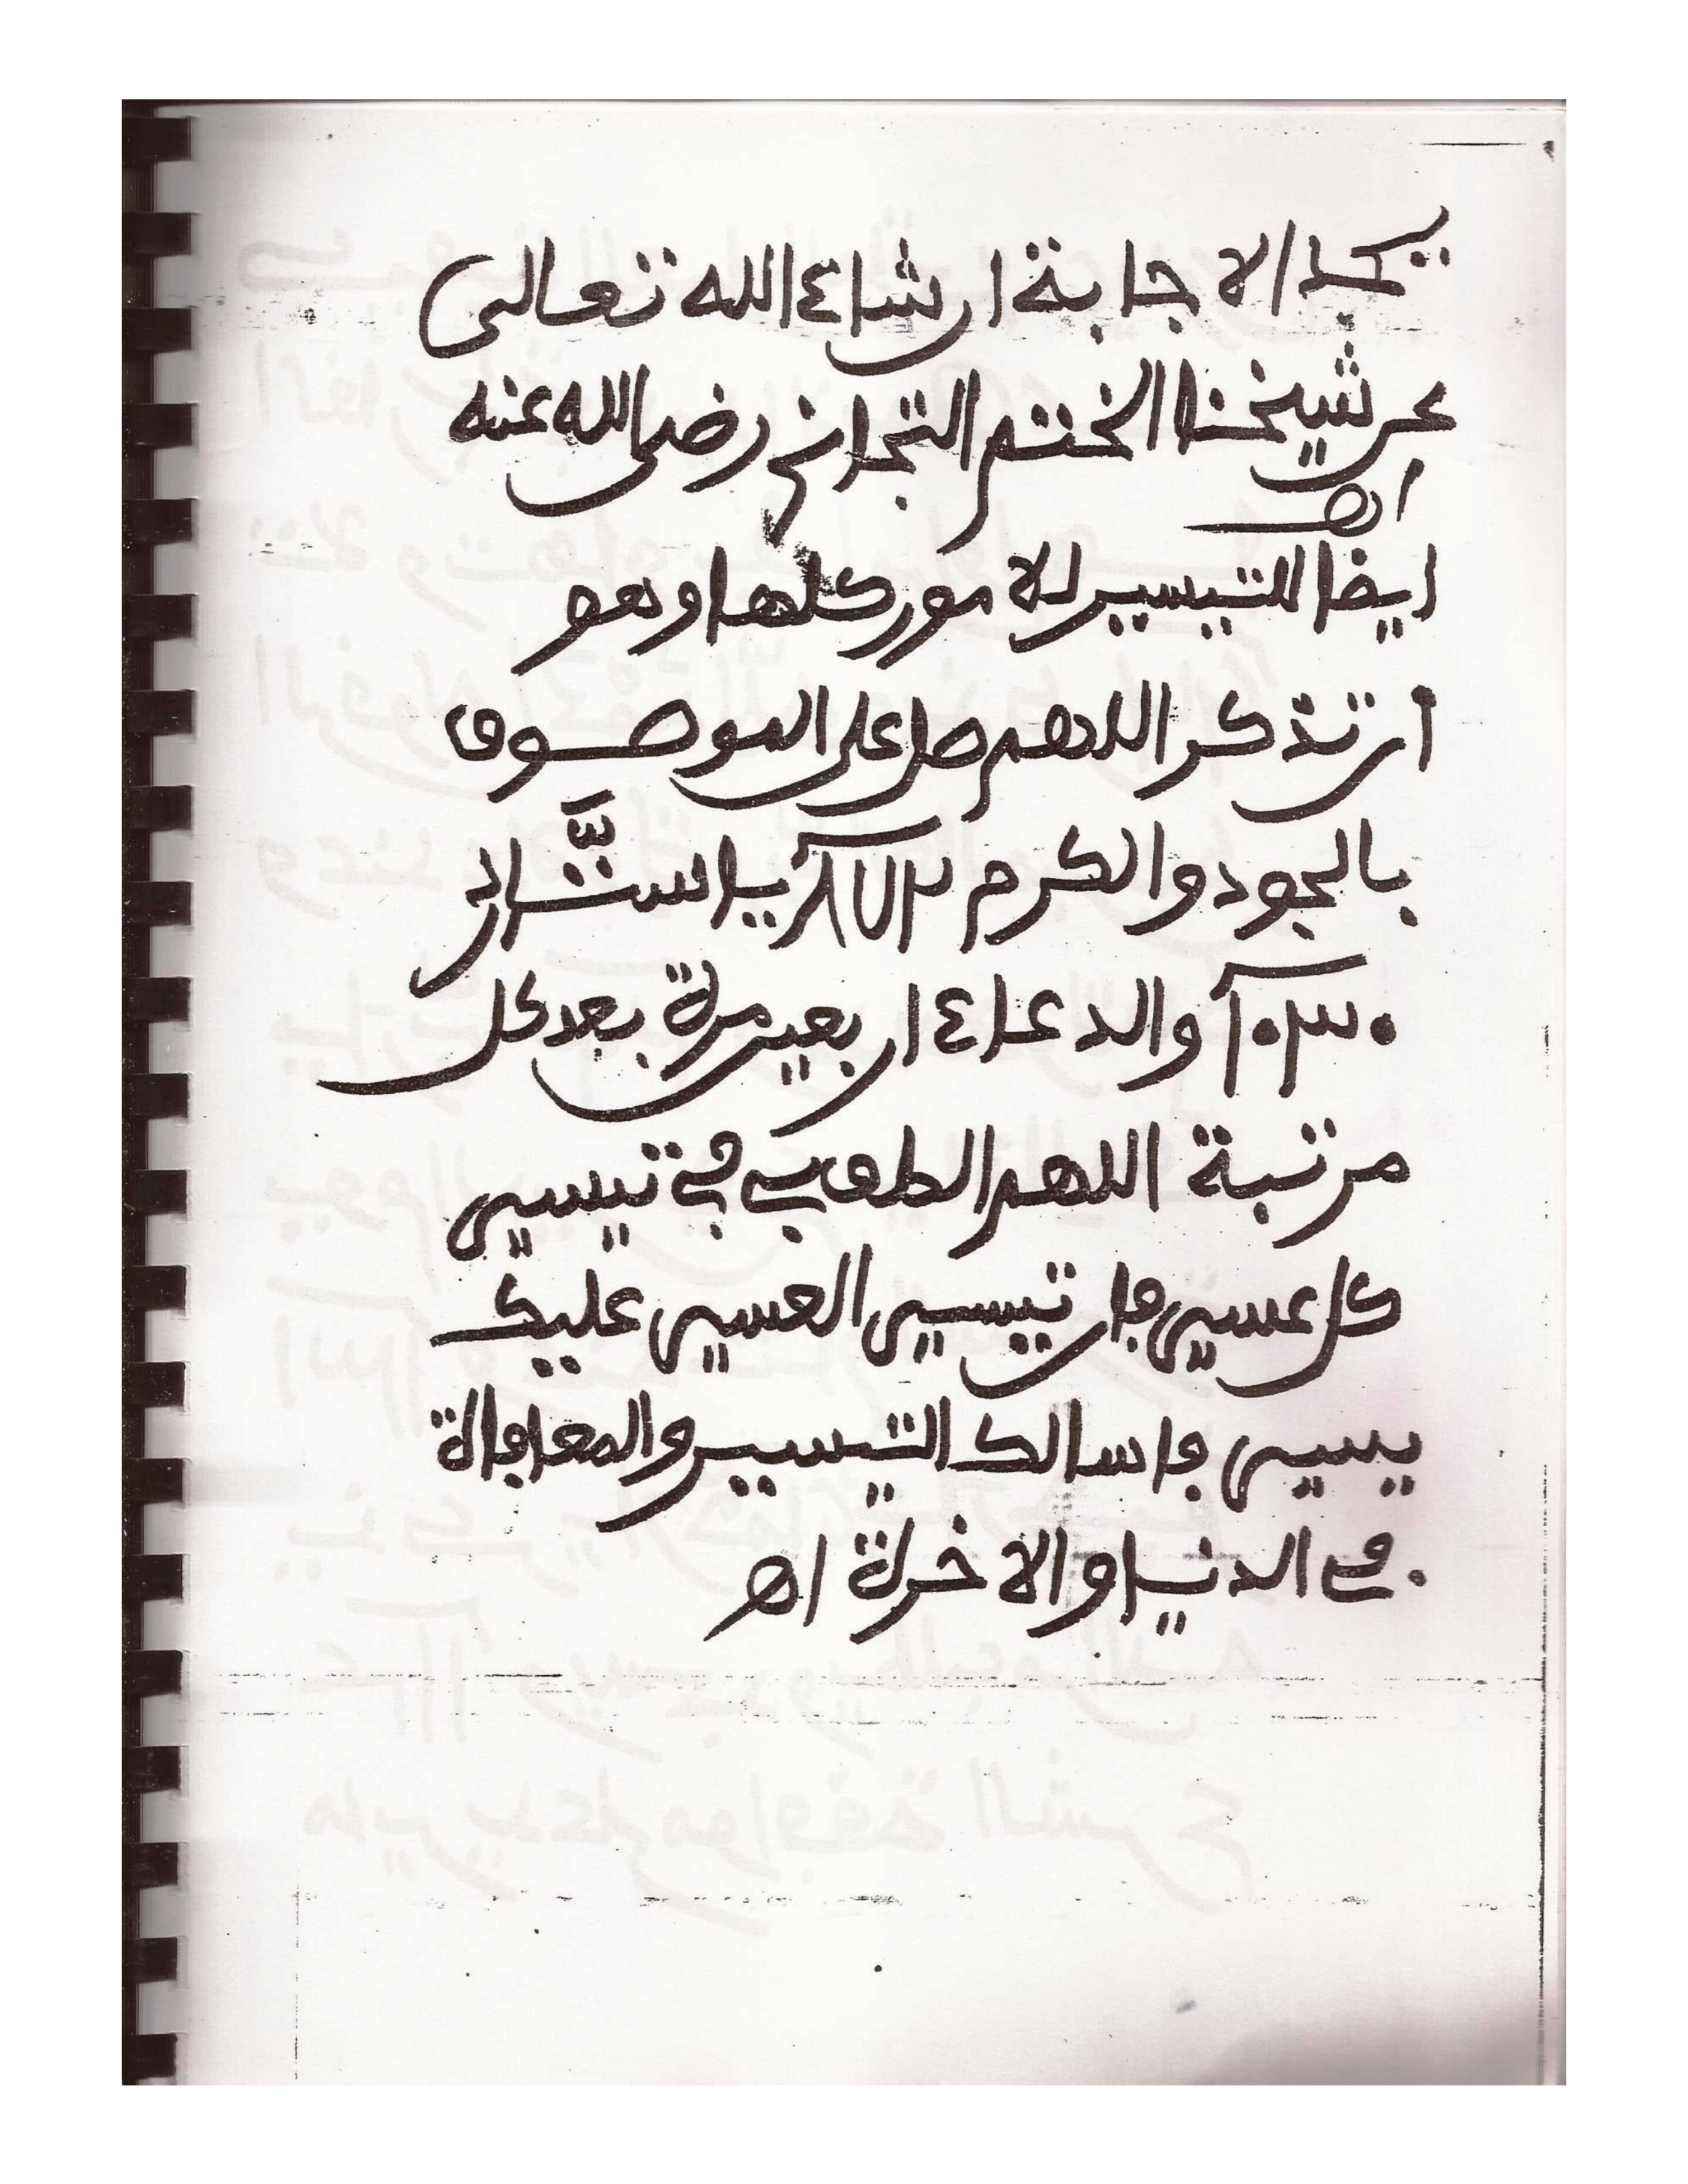 الاجابة ان شاء الله تعالى
عن شيخنا الختم التجاني رضي الله عنه
اهـ
ايضا للتيسير لامور كلها وهو
أن تذكر اللهم صل على الموصوف
بالجود والكرم يا ستَّار
والدعاء اربعين مرة بعد كل
مرتبة اللهم الطف بي في تيسير
كل عسير فان تيسير العسير عليك
يسير فاسالك التيسير والمعافاة
في الدنيا والاخرة اهـ